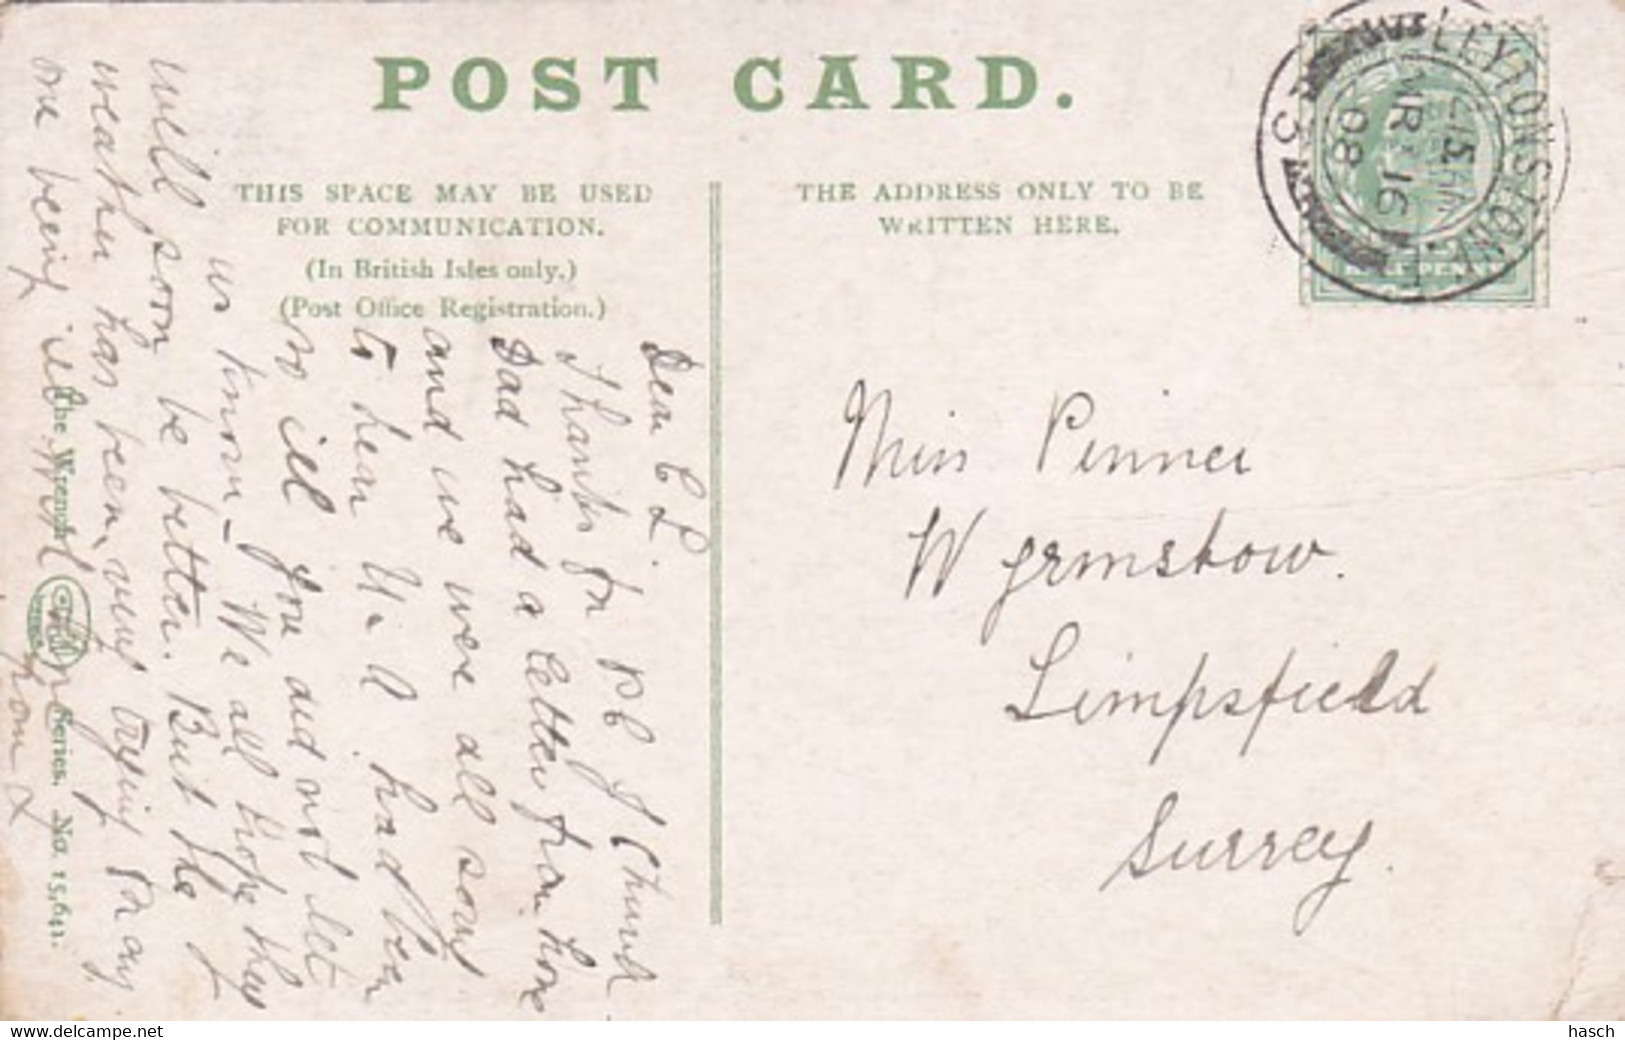 POST CARD.
THIS SPACE MAY BE USED
FOR COMMUNICATION.
(In British Isles only.)
(Post Office Registration.)
THE ADDRESS ONLY TO BE
WRITTEN HERE.
LEYTONSTONE
MR 16
08
HALF PENNY
Miss Penner
W grmstow.
Limpsfield
Surrey.
Dear C L.
Thanks for PC of Church
Dad had a letter from home
and we were all sorry
to hear U. & A had been
so ill you did not let
us know - We all hope they
will soon be better. But the
weather has been, very trying for any
one being ill
from L
The Wrench Series. No. 15,641.
www.delcampe.net
hasch